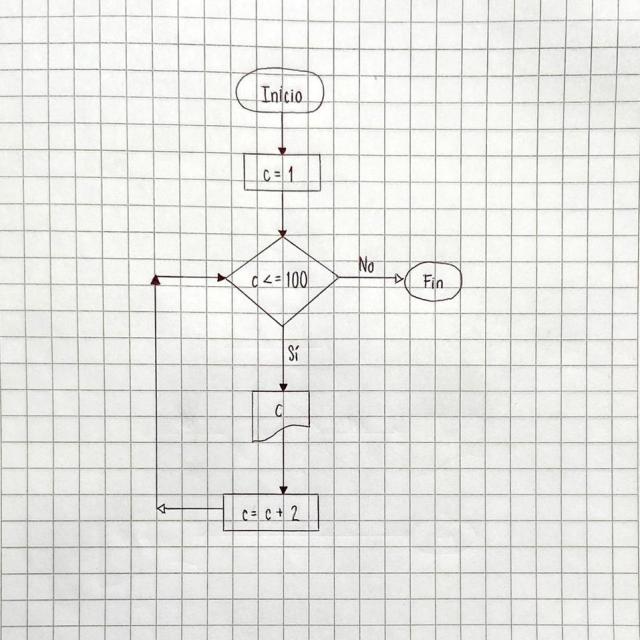 Inicio
c = 1
c <= 100
No
Fin
Sí
C
c = c + 2